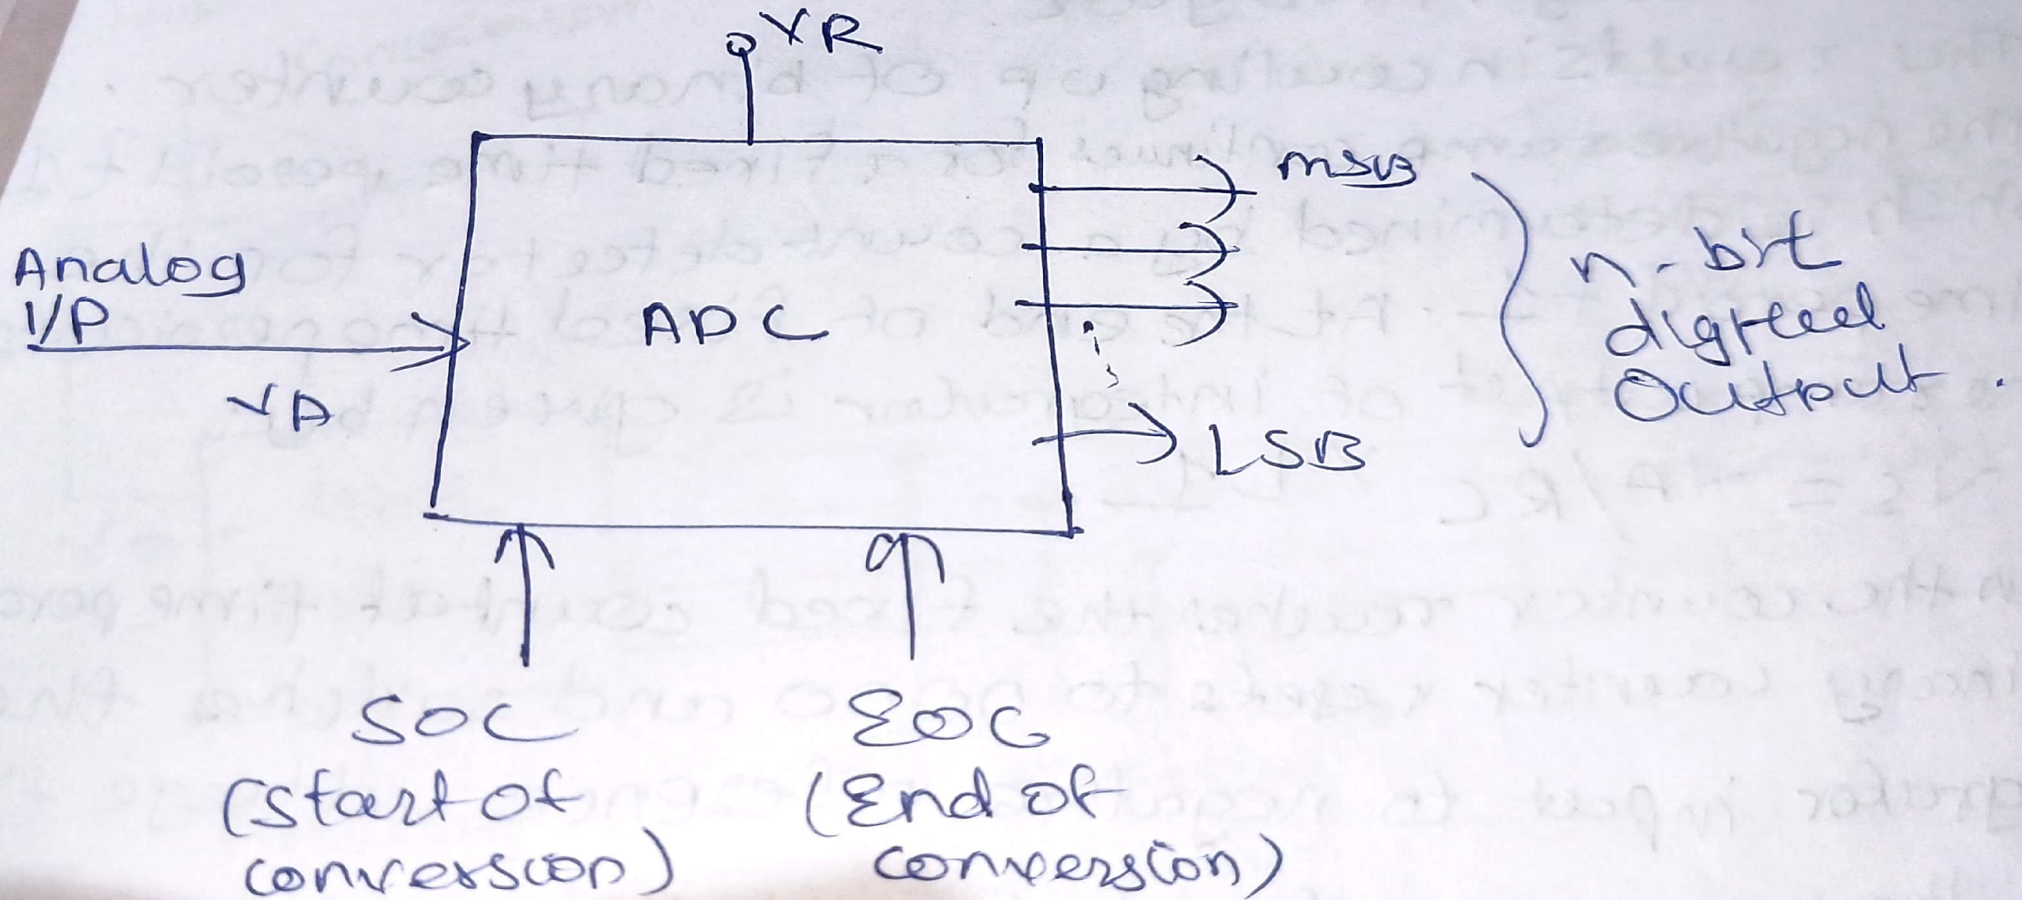 VR
MSB
Analog
I/P
VA
ADC
n-bit
digital
Output.
LSB
SOC
(Start of
conversion)
EOC
(End of
conversion)